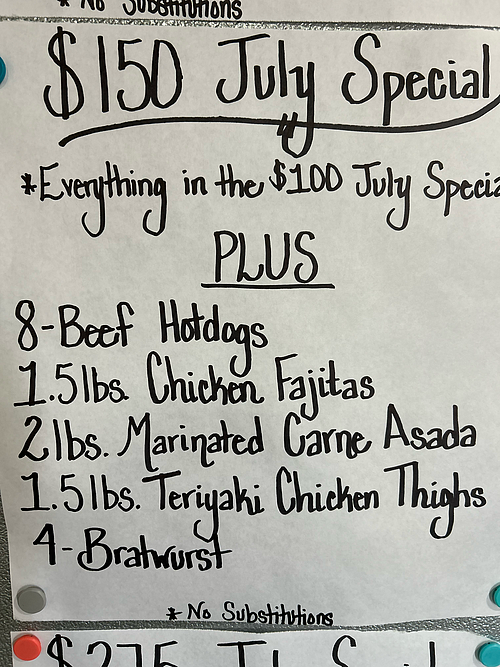 * No Substitutions
$150 July Special
*Everything in the $100 July Specia
PLUS
8-Beef Hotdogs
1.5lbs. Chicken Fajitas
2lbs. Marinated Carne Asada
1.5lbs. Teriyaki Chicken Thighs
4-Bratwurst
* No Substitutions
$275